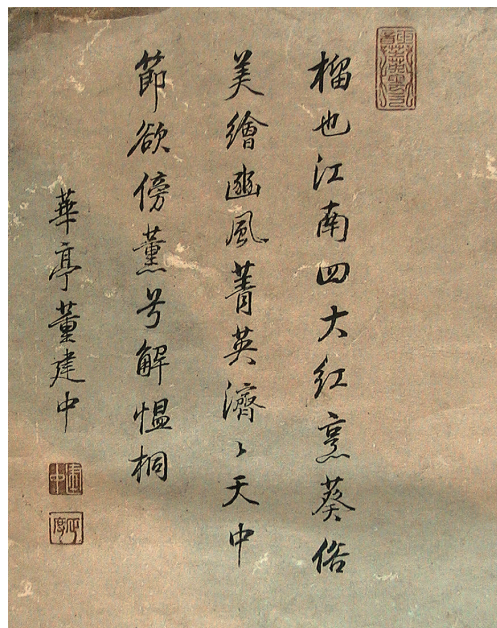 榴也江南四大紅烹葵俗
美繪豳風菁英濟〻天中
節欲傍薰兮解慍桐
華亭董建中
建中